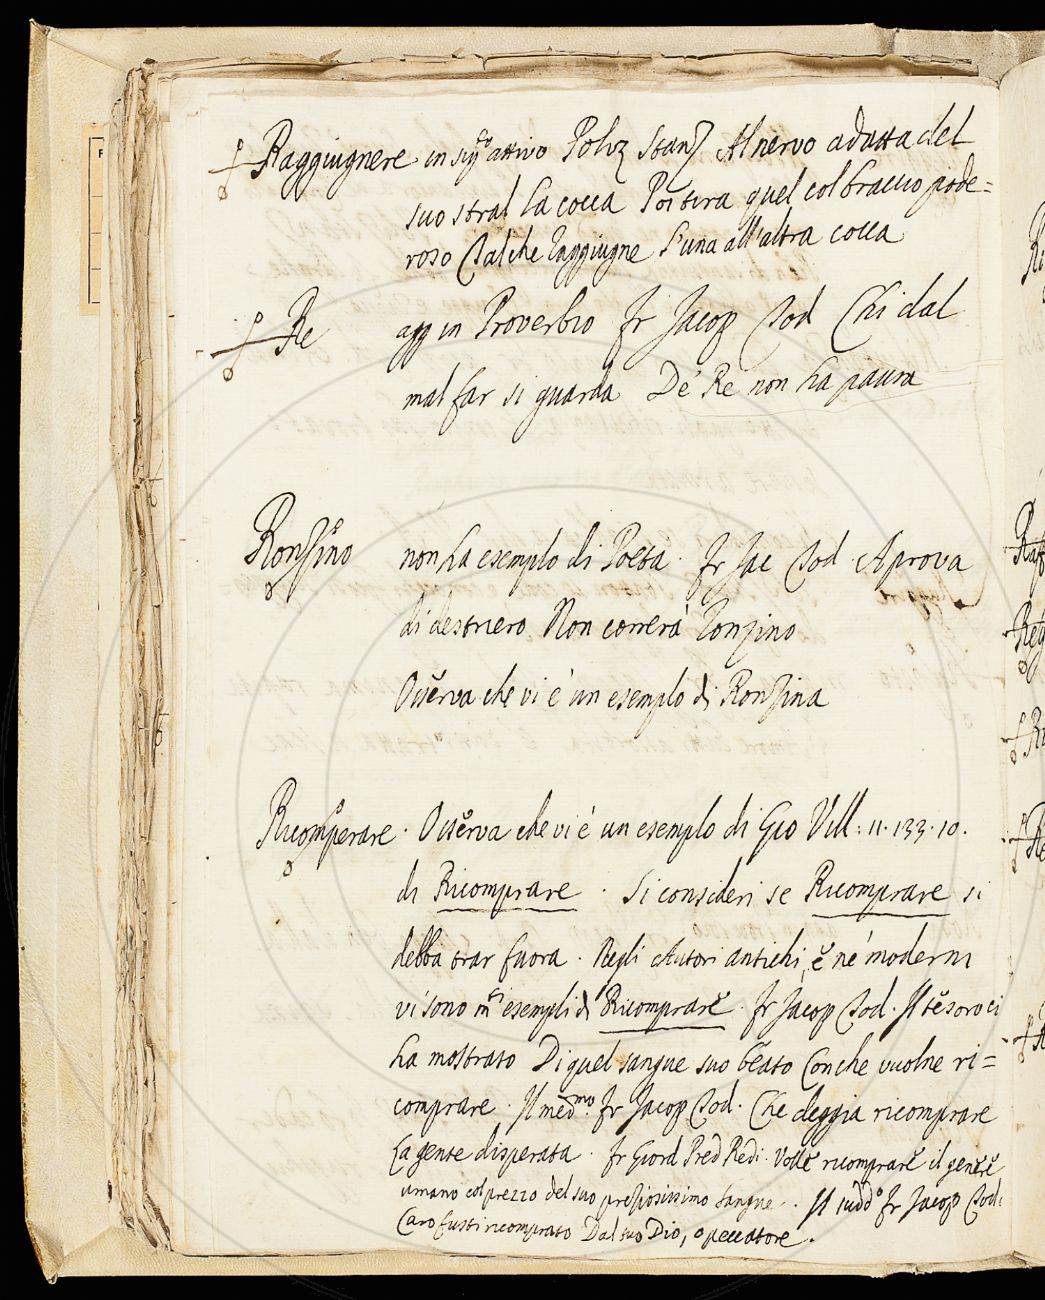 Raggiugnere in sig.to attivo Poliz Stanz Al nervo adatta del
suo stral la cocca Poi tira quel col braccio pode=
roso Talche raggiugne l'una all'altra cocca
Re agg in Proverbio Fr Jacop Tod Chi dal
mal far si guarda De' Re non ha paura
Ronzino non ha esemplo di Poeta. Fr Jac Tod A prova
di destriero Non correrà ronzino
Osserva che vi è un esemplo di Ronzina
Ricomperare. Osserva che vi è un esemplo di Gio Vill: 11.133.10.
di Ricomprare. Si consideri se Ricomprare si
debba trar fuora. Negli Autori antichi, e ne' moderni
vi sono m.ti esempli di Ricomprare. Fr Jacop Tod. Il tesoro ci
ha mostrato Di quel sangue suo beato Con che vuolne ri=
comprare. Il med.mo Fr Jacop Tod. Che deggia ricomprare
La gente disperata. Fr Giord Pred Redi. Volle ricomprare il genere
umano col prezzo del suo preziosissimo sangue. Il sudd.o Fr Jacop Tod:
Caro fusti ricomprato Dal tuo Dio, o peccatore.